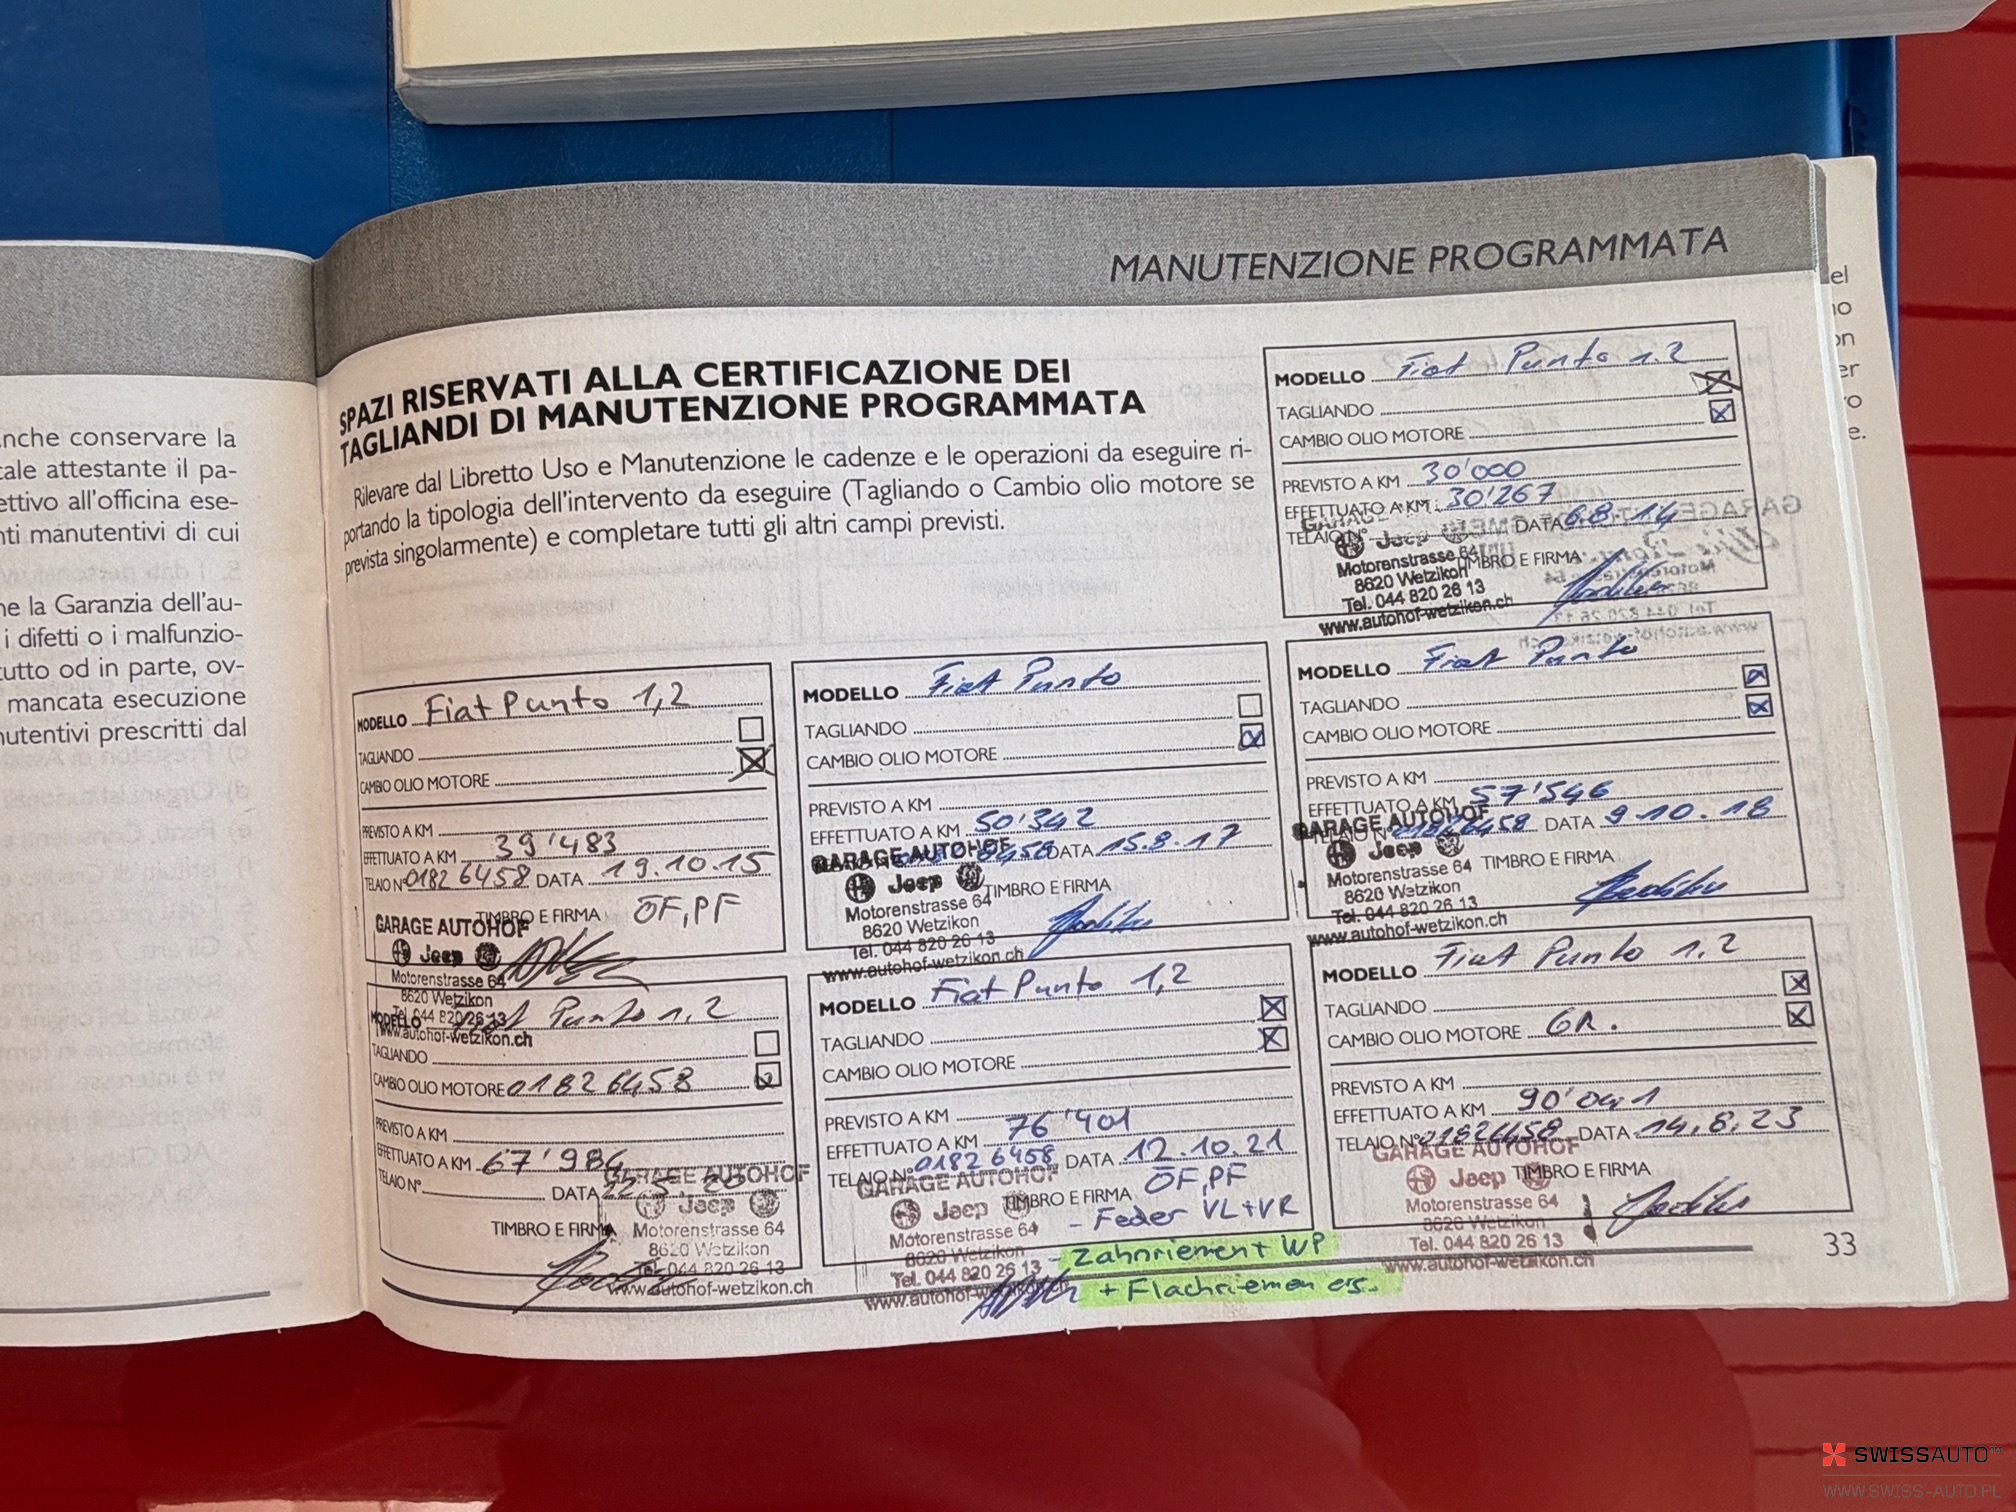 MANUTENZIONE PROGRAMMATA
SPAZI RISERVATI ALLA CERTIFICAZIONE DEI
TAGLIANDI DI MANUTENZIONE PROGRAMMATA
Rilevare dal Libretto Uso e Manutenzione le cadenze e le operazioni da eseguire ri-
portando la tipologia dell'intervento da eseguire (Tagliando o Cambio olio motore se
prevista singolarmente) e completare tutti gli altri campi previsti.
MODELLO Fiat Punto 1.2
TAGLIANDO
CAMBIO OLIO MOTORE
PREVISTO A KM 30'000
EFFETTUATO A KM 30'267
TELAIO N° DATA 6.8.14
TIMBRO E FIRMA
GARAGE
Jeep
Motorenstrasse 64
8620 Wetzikon
Tel. 044 820 26 13
www.autohof-wetzikon.ch
MODELLO Fiat Punto 1,2
TAGLIANDO
CAMBIO OLIO MOTORE
PREVISTO A KM
EFFETTUATO A KM 39'483
TELAIO N° 01826458 DATA 19.10.15
TIMBRO E FIRMA ÖF, PF
GARAGE AUTOHOF
Jeep
Motorenstrasse 64
8620 Wetzikon
Tel. 044 820 26 13
www.autohof-wetzikon.ch
MODELLO Fiat Punto
TAGLIANDO
CAMBIO OLIO MOTORE
PREVISTO A KM
EFFETTUATO A KM 50'342
6458 DATA 15.8.17
TIMBRO E FIRMA
GARAGE AUTOHOF
Jeep
Motorenstrasse 64
8620 Wetzikon
Tel. 044 820 26 13
www.autohof-wetzikon.ch
MODELLO Fiat Punto
TAGLIANDO
CAMBIO OLIO MOTORE
PREVISTO A KM
EFFETTUATO A KM 57'546
TELAIO N° 01826458 DATA 9.10.18
TIMBRO E FIRMA
GARAGE AUTOHOF
Jeep
Motorenstrasse 64
8620 Wetzikon
Tel. 044 820 26 13
www.autohof-wetzikon.ch
MODELLO Fiat Punto 1.2
TAGLIANDO
CAMBIO OLIO MOTORE 01826458
PREVISTO A KM
EFFETTUATO A KM 67'984
TELAIO N° DATA 22.5.20
TIMBRO E FIRMA
GARAGE AUTOHOF
Jeep
Motorenstrasse 64
8620 Wetzikon
Tel. 044 820 26 13
www.autohof-wetzikon.ch
MODELLO Fiat Punto 1,2
TAGLIANDO
CAMBIO OLIO MOTORE
PREVISTO A KM
EFFETTUATO A KM 76'401
TELAIO N° 01826458 DATA 12.10.21
TIMBRO E FIRMA ÖF, PF
- Feder VL+VR
- Zahnriemen + WP
+ Flachriemen ers.
GARAGE AUTOHOF
Jeep
Motorenstrasse 64
8620 Wetzikon
Tel. 044 820 26 13
www.autohof-wetzikon.ch
MODELLO Fiat Punto 1.2
TAGLIANDO
CAMBIO OLIO MOTORE GR.
PREVISTO A KM
EFFETTUATO A KM 90'041
TELAIO N° 01826458 DATA 14.8.23
TIMBRO E FIRMA
GARAGE AUTOHOF
Jeep
Motorenstrasse 64
8620 Wetzikon
Tel. 044 820 26 13
www.autohof-wetzikon.ch
33
anche conservare la
cale attestante il pa-
ettivo all'officina ese-
nti manutentivi di cui
ne la Garanzia dell'au-
i difetti o i malfunzio-
tutto od in parte, ov-
mancata esecuzione
nutentivi prescritti dal
SWISSAUTO
WWW.SWISS-AUTO.PL